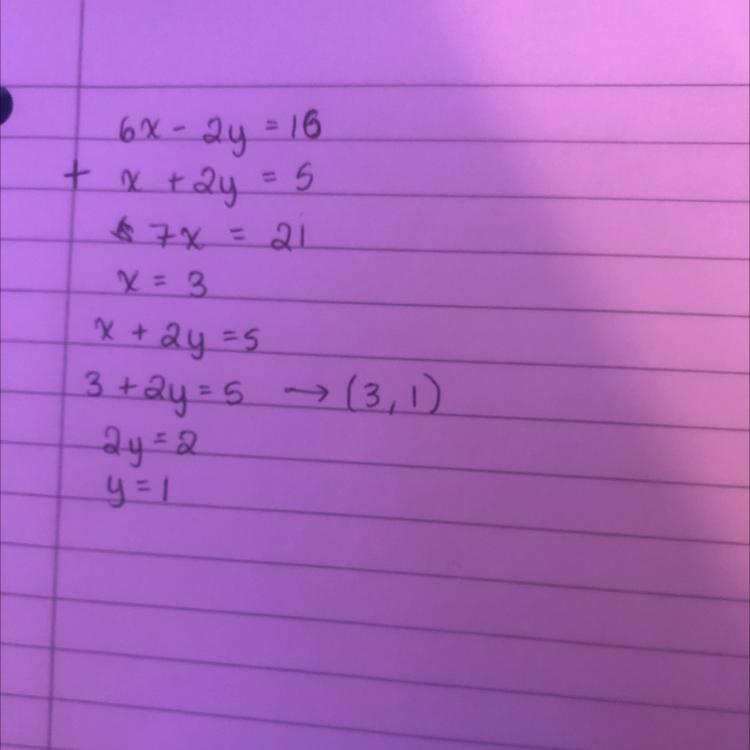 6x - 2y = 16
+ x + 2y = 5
7x = 21
x = 3
x + 2y = 5
3 + 2y = 5 → (3, 1)
2y = 2
y = 1